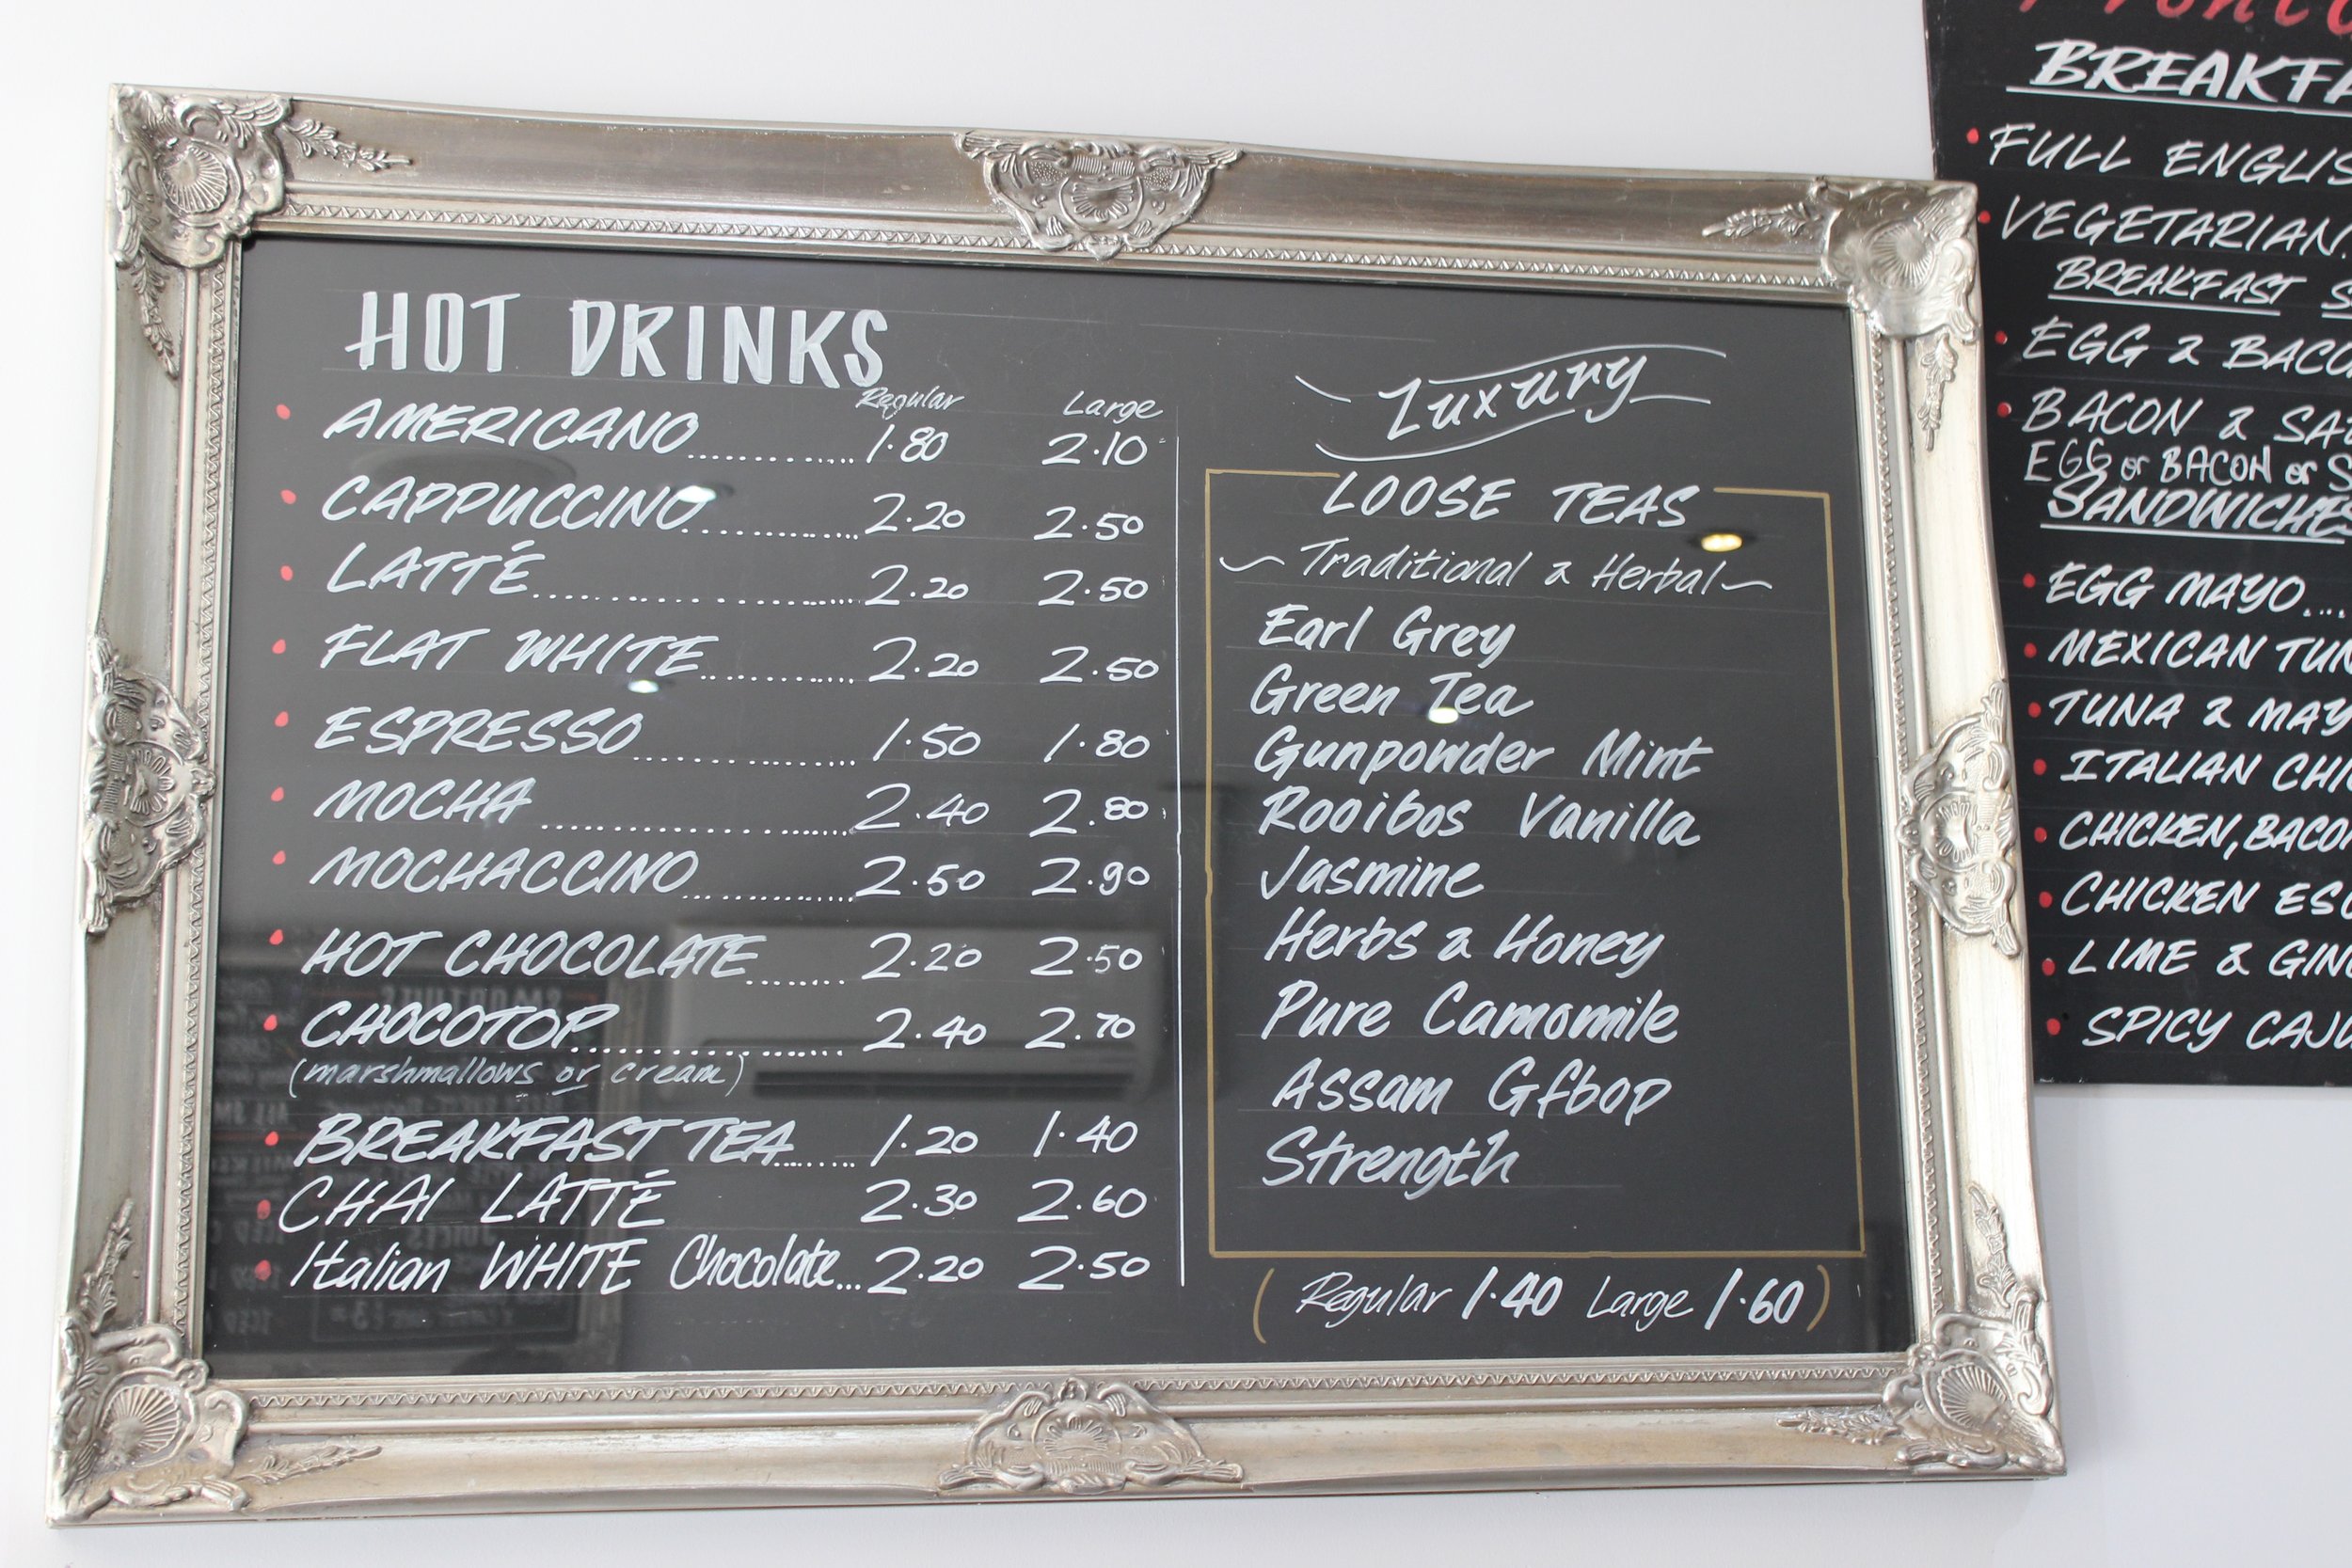 HOT DRINKS
Regular Large
AMERICANO............1.80 2.10
CAPPUCCINO............2.20 2.50
LATTÉ............2.20 2.50
FLAT WHITE............2.20 2.50
ESPRESSO............1.50 1.80
MOCHA............2.40 2.80
MOCHACCINO............2.50 2.90
HOT CHOCOLATE.......2.20 2.50
CHOCOTOP............2.40 2.70
(marshmallows or cream)
BREAKFAST TEA.......1.20 1.40
CHAI LATTÉ 2.30 2.60
Italian WHITE Chocolate...2.20 2.50
Luxury
LOOSE TEAS
~ Traditional & Herbal ~
Earl Grey
Green Tea
Gunpowder Mint
Rooibos Vanilla
Jasmine
Herbs & Honey
Pure Camomile
Assam Gfbop
Strength
(Regular 1.40 Large 1.60)
FULL
VEGETARIAN
BREAKFAST
EGG &
BACON &
EGG or BACON or
EGG MAYO....
MEXICAN
TUNA &
ITALIAN
CHICKEN,
CHICKEN
LIME &
SPICY